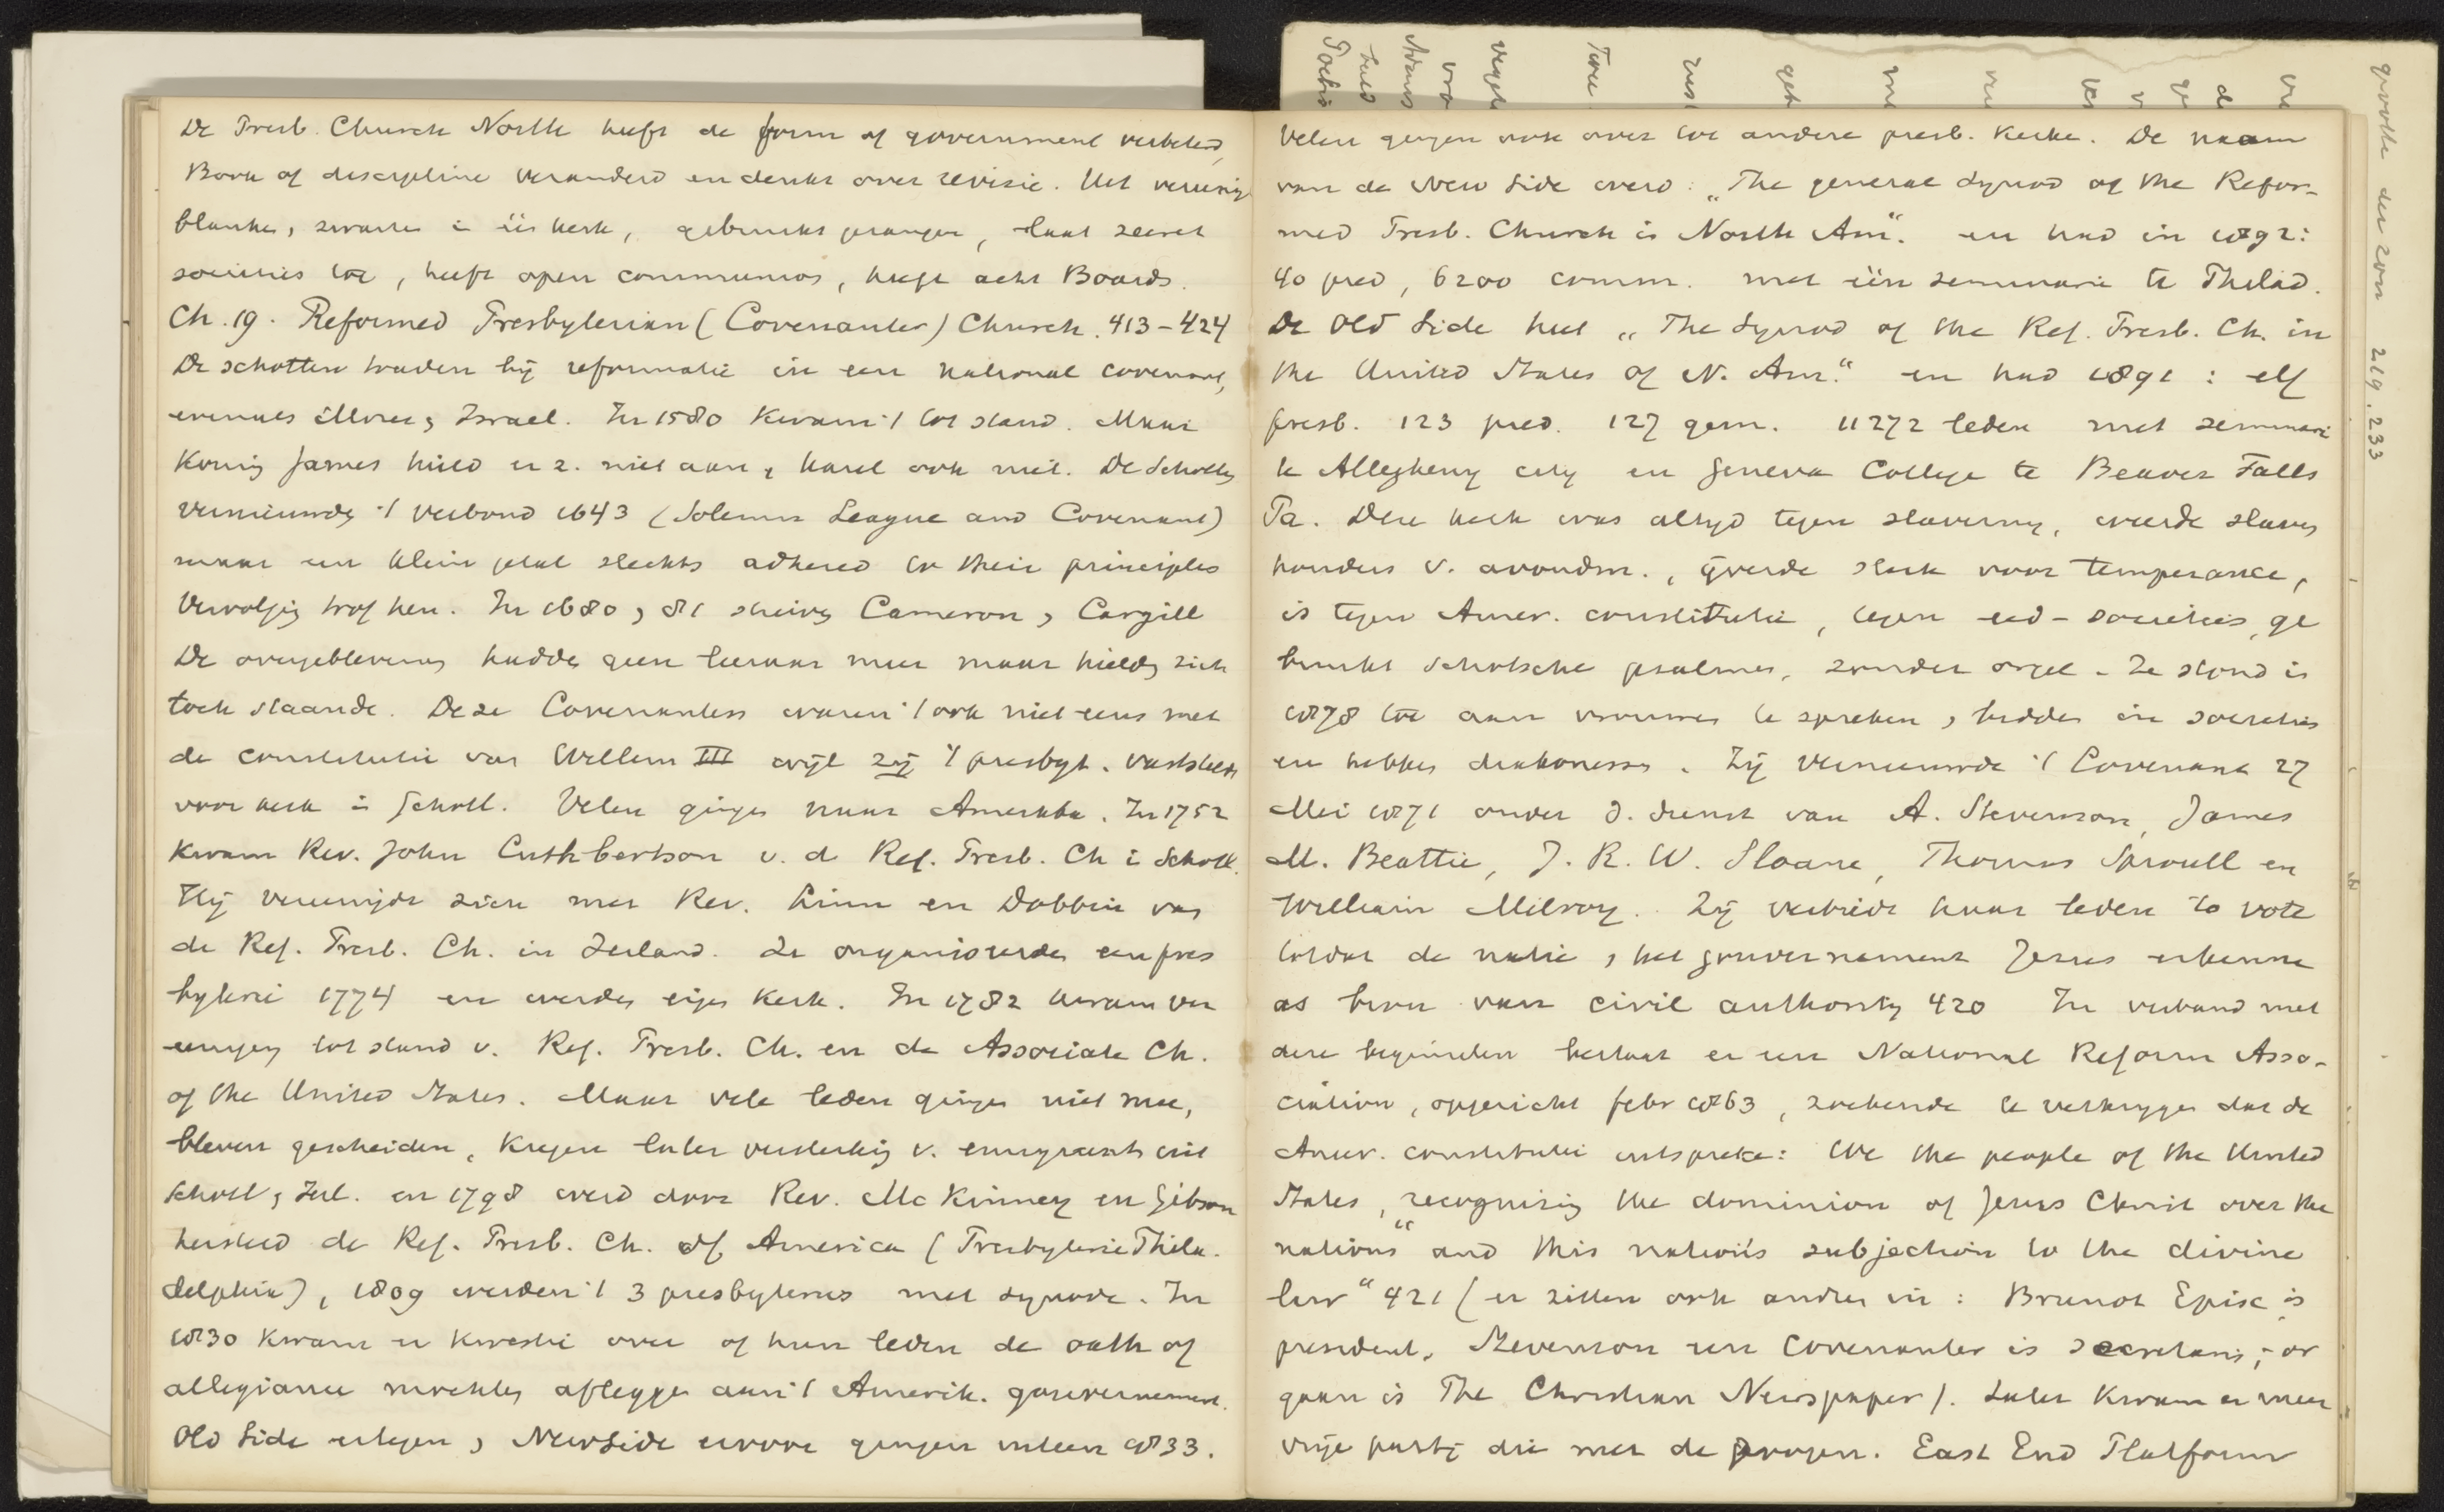 De Presb. Church North heeft de form of government verbeterd,
Book of discipline veranderd en denkt over revisie. Het vereenig
blanken, zwarten in één kerk, gebruikt gezangen, laat secret
societies toe, heeft open communion, heeft acht Boards.
Ch. 19. Reformed Presbyterian (Covenanter) Church. 413-424
De schotten traden bij reformatie in een national covenant,
evenals Mozes, Israel. In 1580 kwam 't tot stand. Maar
Koning James hield er z. niet aan, Karel ook niet. De Schotten
vernieuwden 't verbond 1643 (Solemn League and Covenant)
maar een klein getal slechts adhered to their principles
Vervolging trof hen. In 1680, 81 stierven Cameron, Cargill
De overgeblevenen hadden geen leeraar meer maar hielden zich
toch staande. Deze Covenanters waren 't ook niet eens met
de constitutie van Willem III wijl zij 't presbyt. vaststelde
voor kerk in Schotl. Velen gingen naar Amerika. In 1752
kwam Rev. John Cuthbertson v. d Ref. Presb. Ch i Schotl.
Hij vereenigde zich met Rev. Linn en Dobbin van
de Ref. Presb. Ch. in Ierland. Ze organiseerden een pres
byterie 1774 en werden eigen kerk. In 1782 kwam ver
eeniging tot stand v. Ref. Presb. Ch. en de Associate Ch.
of the United States. Maar vele leden gingen niet mee,
bleven gescheiden, kregen later versterking v. emigrants uit
Schotl, Ierl. en 1798 werd door Rev. McKinney en Gibson
hersteld de Ref. Presb. Ch. of America (Presbyterie Phila-
delphia), 1809 werden 't 3 presbyteries met synode. In
1830 kwam er kwestie over of hun leden de oath of
allegiance mochten afleggen aan 't Amerik. gouvernement.
Old Side ertegen, New Side ervoor gingen uiteen 1833.
Velen gingen ook over tot andere presb. kerken. De naam
van de New Side werd: „The general Synod of the Refor-
med Presb. Church in North Am." en had in 1892:
40 pred, 6200 comm. met één seminarie te Philad.
De Old Side heet „The Synod of the Ref. Presb. Ch. in
the United States of N. Am." en had 1891: elf
presb. 123 pred. 127 gem. 11272 leden met seminarie
te Allegheny city en Geneva College te Beaver Falls
Pa. Deze kerk was altijd tegen slavernij, weerde slaven
houders v. avondm., ijverde sterk voor temperance,
is tegen Amer. constitutie, tegen eed-societies, ge
bruikt Schotsche psalmen, zonder orgel. Ze stond in
1878 toe aan vrouwen te spreken, bidden in societies
en hebben diakonessen. Zij vernieuwde 't Covenant 27
Mei 1871 onder d. dienst van A. Stevenson, James
M. Beattie, J. R. W. Sloane, Thomas Sproull en
William Milroy. Zij verbiedt haar leden to vote
totdat de natie, het gouvernement Jezus erkenne
as bron van civil authority 420 In verband met
deze beginselen bestaat er een National Reform Asso-
ciation, opgericht febr 1863, zoekende te verkrijgen dat de
Amer. constitutie uitspreke: We the people of the United
States, recognising the dominion of Jesus Christ over the
nations" and this nation's subjection to the divine
law" 421 (er zitten ook andren in: Brunot Episc. is
president, Stevenson een Covenanter is secretaris, or
gaan is The Christian Newspaper). Later kwam er meer
vrije partij die met de progen. East End Platform
grootte der zon 219. 233